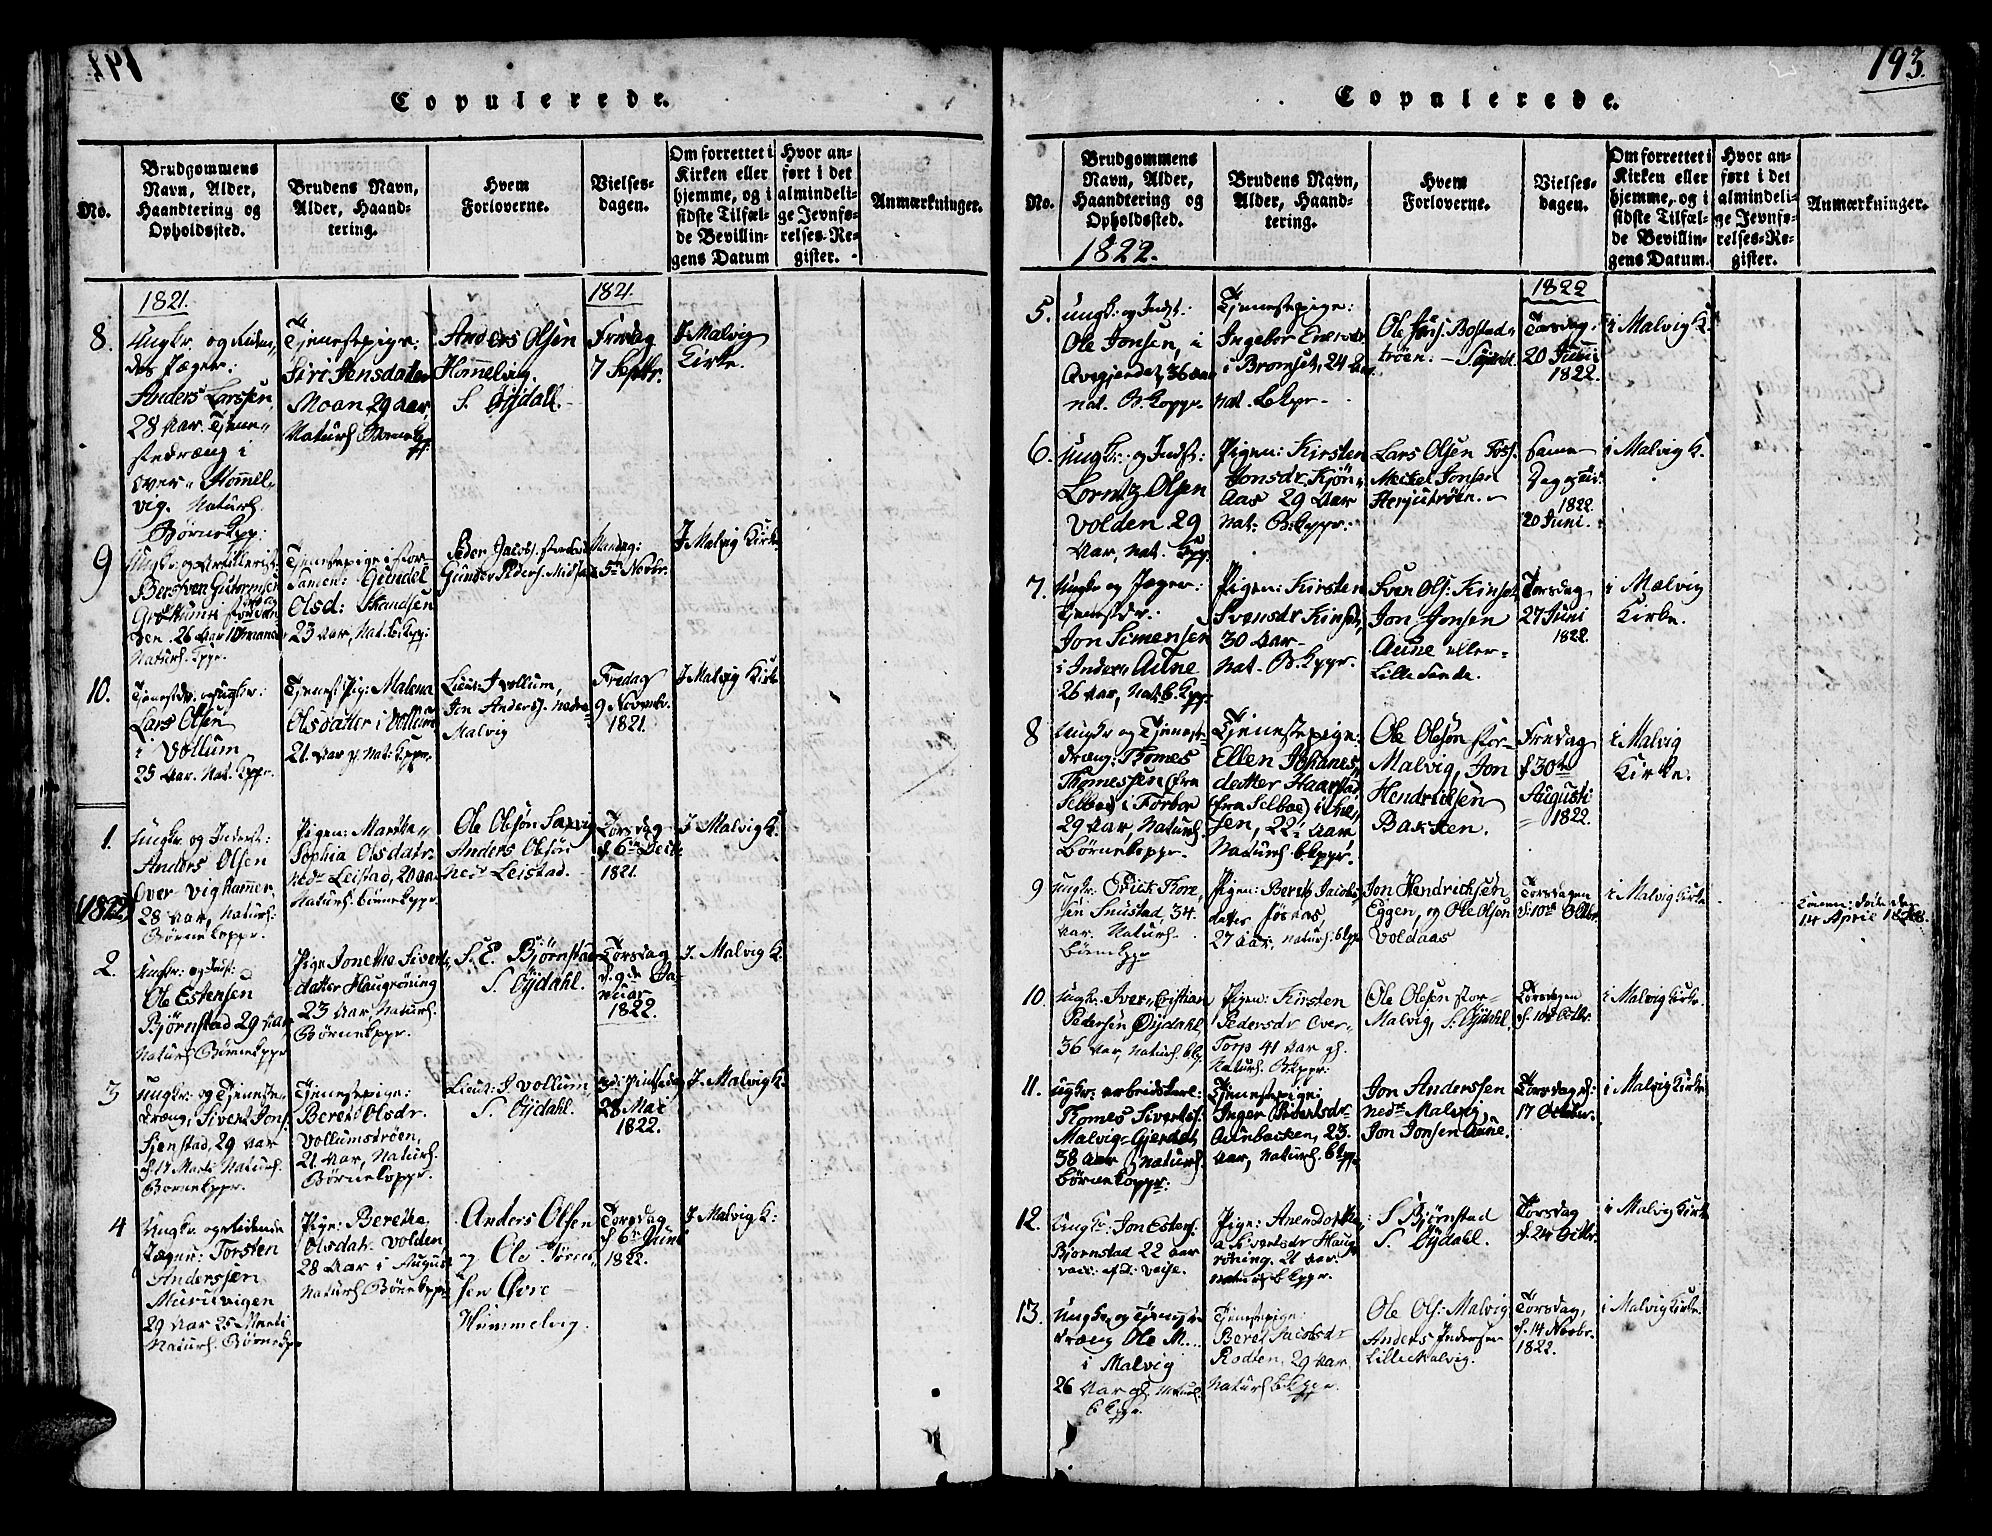 193.
Copulerede.
No.
Brudgommens
Navn, Alder,
Haandtering og
Opholdssted.
Brudens Navn,
Alder, Haand-
tering.
Hvem
Forloverne.
Vielses-
dagen.
Om forrettet i
Kirken eller
hjemme, og i
sidste Tilfæl-
de Bevillin-
gens Datum
Hvor an-
ført i det
almindeli-
ge Jevnfø-
relses-Re-
gister.
Anmærkninger.
1821.
1821.
8.
Ungkr. og
Jæger:
Anders Larssen,
28 Aar. Tjene-
stedræng i
over- Hommel-
vig. Naturl.
Børnekpp:
Tjenestepige:
Siri Jensdatter
Moan 29 Aar,
Naturl. Børnekp
Anders Olsen
Hommelvig
S. Øydall.
Fredag
7 Septbr.
I Malvig
Kirke.
9
Ungkr. og
Berstven Guttormsen
den. 26 Aar 10 maaneder
Naturl. kpp.
Tjenestepige i Stor-
Gundel
Olsd:
23 Aar, Nat. Bkpp:
Peder Jacobs.
Gunder Peders.
Mandag:
5te Novbr.
I Malvig Kirke
10.
Tjenestdr. og Ungkr:
Lars Olsen
i Vollum
25 Aar. Nat. kppr.
Tjenest Pig: Malena
Olsdatter i Vollum
21 Aar Nat. kppr.
Lieut: I Vollum,
Jon Anders. nedre
Malvig
Fredag
9 Novemb.
1821.
I Malvig Kirke
1.
(1822)
Ungkr. og Inderst:
Anders Olsen
Over Vighammer
28 Aar, Naturl:
Børnekoppr.
Pigen: Martha
Sophia Olsdatr.
nedre Leistad, 20 Aar
Naturl. Børnekppr.
Ole Olsön Saxvig
Anders Olsön
nedre Leistad.
Torsdag
d. 6te Decbr
1821.
I Malvig K.
2.
Ungkr: og Inst:
Ole Estensen
Bjørnstad 29 Aar
Naturl. Børnekppr
Pige Jonetta Siverts
datter Haugrøning
23 Aar, Naturl.
Børnekppr.
S. E. Bjørnstad
S. Øydahl.
Torsdag
d. 9de Ja-
nuar
1822.
I Malvig K.
3
Ungkr: og Tjeneste-
dræng; Sivert Jons.
Sjenstad, 29 Aar
d. 17 Marti Naturl.
Børnekppr.
Tjenestepige:
Beret Olsdr.
Vollumsdrøen,
21 Aar, Naturl.
Børnekoppr.
Lieut: I Vollum
S. Øydahl.
3di Pintsedag
28 Mai
1822.
I Malvig K.
4
Ungkr. og ridende
Jæger: Torsten
Anderssen
Muruvigen
29 Aar 25 Marti
Naturl. Børnekp
Pige: Beretha
Olsdatr. Volden
28 Aar i August
Naturl. Børnekppr
Anders Olsen
og Ole Tores-
sen Øvre-
Hummelvig.
Torsdag
d. 6te Juni
1822.
I Malvig K:
Copulerede.
No.
Brudgommens
Navn, Alder,
Haandtering og
Opholdssted.
1822.
Brudens Navn,
Alder, Haand-
tering.
Hvem
Forloverne.
Vielses-
dagen.
Om forrettet i
Kirken eller
hjemme, og i
sidste Tilfæl-
de Bevillin-
gens Datum.
Hvor an-
ført i det
almindeli-
ge Jevnfø-
relses-Re-
gister.
Anmærkninger.
1822
5.
Ungk: og Indst:
Ole Jonsen, i
Avegjerdet, 36 Aar
nat. B. koppr.
Tjenestepige:
Ingebor
i Bromset, 24 Aar
nat. bkpr.
Ole Bostad-
trøen.
Torsdag
20 Juni
1822.
i Malvig K.
6.
Ungkr. og Indst:
Lorntz Olsen
Volden 29
Aar, nat. kpp.
Pigen: Kirsten
Jonsdr Kjøn-
Aas 29 Aar
Nat: B. kppr:
Lars Olsen
Meckel Jonsen
Herjutrøen.
Samme
Dag og
1822
20 Juni.
i Malvig K.
7.
Ungkr og Jæger:
Tjenestdr:
Jon Simensen
i Inder- Aune
26 Aar, Nat. b. kpp.
Pigen: Kirsten
Svensdr Kinset,
30 Aar-
Nat. B. kppr.
Sven Ols: Kinset,
Jon Jonsen
Aune eller-
Lille Sande.
Torsdag
27 Juni
1822.
i Malvig
Kirke.
8
Ungkr og Tjenest-
dræng: Thomes
Thomessen (fra
Selboe) i Forbor
29 Aar, Naturl.
Børnekoppr.
Tjenestepige:
Ellen Johanes
datter Haarstad
(fra Selboe) i
22 Aar
Naturl. bkppr.
Ole Olsön Stor-
Malvig, Jon
Hendrichsen
Bakken.
Fredag
d 30te
Augusti
1822.
i Malvig
Kirke.
9
Ungkr. Erick Thore
sen Snustad, 34
Aar. Naturl.
Børnekppr
Pigen: Beret Jacobs
datter
27 Aar, naturl. bkpp
Jon Hendrichsen
Eggen, og Ole Olsen
Voldaas
Torsdagen
d. 10de Octbr
i Malvig Kirke
14 April
10.
Ungkr. Iver Cristian
Pedersen Øydahl,
36 Aar, naturl. bkp.
Pigen: Kirsten
Pedersdr Over-
Torp 41 Aar gl.
Naturl. Bkppr:
Ole Olsen Stor-
Malvig, S. Øydahl.
Torsdagen
d. 10d Octbr.
i Malvig Kirke.
11.
Ungkr: arbeidskarl:
Thomes Siverts.
Malvig-Gjerdet,
38 Aar naturl.
børnekoppr:
Tjenestepige;
Inger Sivertsdr
Aunbacken, 23
Aar, Naturl. bkpp
Jon Anderssen
nedre Malvig
Jon Jonsen Aune.
Torsdag d:
17 October.
i Malvig Kirke
12.
Ungkr: Jon Estens.
Bjørnstad 22 Aar
Pige: Anen Dorthe
a Sivertsdr Haug-
røning. 21 Aar.
naturl b kppr.
S Bjørnstad
S. Øydahl.
Torsdag
d. 24 Octbr.
i Malvig Kirke
13.
Ungkr. og Tjenest
dræng Ole M....
i Malvig
26 Aar gl. natur
b kppr.
Tjenestepige:
Beret Jacobsdr
Rodten, 29 Aar
Naturl. bkppr.
Ole Ols: Malvig
Anders Pedersen
Lille Malvig.
Torsdag,
d. 14 Novbr.
1822.
i Malvig Kirke.